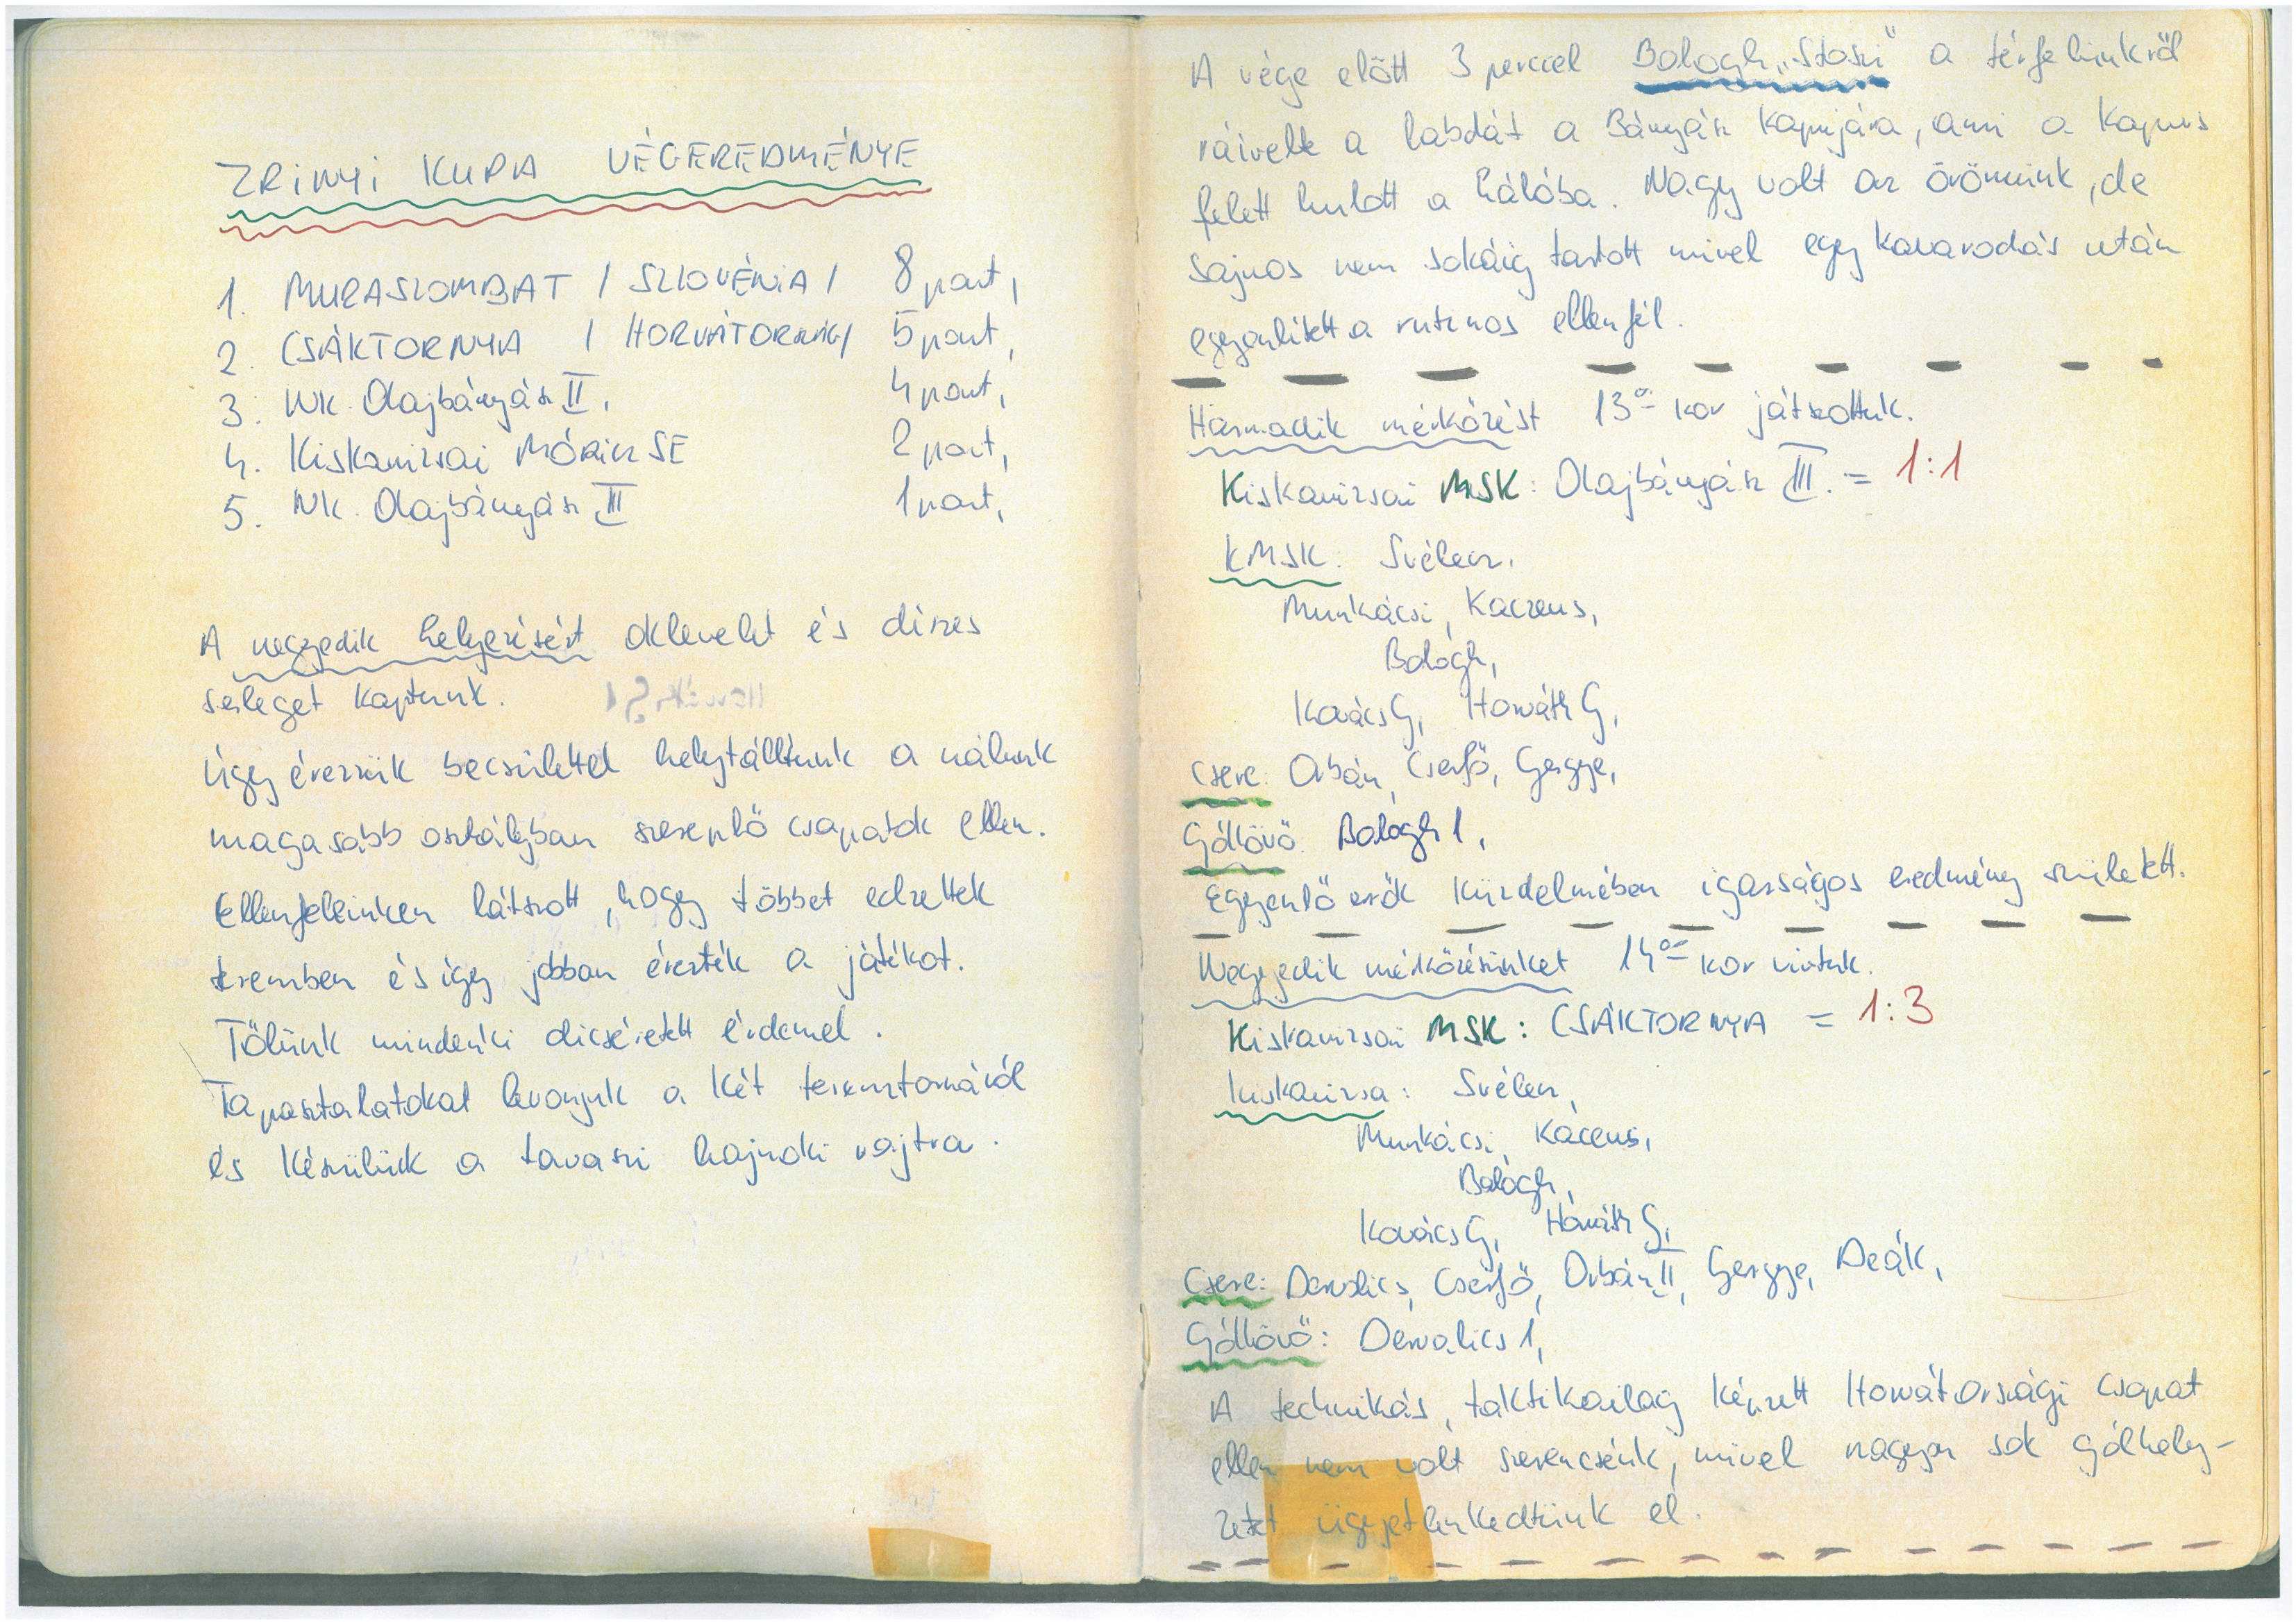 ZRINYI KUPA VÉGEREDMÉNYE
1. MURASZOMBAT / SZLOVÉNIA / 8 pont,
2. CSÁKTORNYA / HORVÁTORSZÁG / 5 pont,
3. NK. Olajbányász II. 4 pont,
4. Kiskanizsai MÓRICZ SE 2 pont,
5. NK. Olajbányász III 1 pont,
A negyedik helyezésért oklevelet és díszes
serleget kaptunk.
Úgy érezzük becsülettel helytálltunk a nálunk
magasabb osztályban szereplő csapatok ellen.
Ellenfeleinken látszott, hogy többet edzettek
teremben és így jobban érezték a játékot.
Tőlünk mindenki dicséretett érdemel.
Tapasztalatokat levonjuk a két teremtornáról
és készülünk a tavaszi bajnoki rajtra.
A vége előtt 3 perccel Balogh „Stoszi" a térfelünkről
ráívelte a labdát a Bányász kapujára, ami a kapus
felett hullott a hálóba. Nagy volt az örömünk, de
sajnos nem sokáig tartott mivel egy kavarodás után
egyenlített a rutinos ellenfél.
Harmadik mérkőzést 13°° kor játszottuk.
Kiskanizsai MSK: Olajbányász III. = 1:1
KMSK: Svélecz,
Munkácsi, Kaczeus,
Balogh,
Kovács G, Horváth G,
Csere: Orbán, Cserfő, Gergye,
Góllövő: Balogh 1,
Egyenlő erők küzdelmében igazságos eredmény született.
Negyedik mérkőzésünket 14°° kor vívtuk.
Kiskanizsai MSK: CSÁKTORNYA = 1:3
Kiskanizsa: Svélecz,
Munkácsi, Kaceus,
Balogh,
Kovács G, Horváth G,
Csere: Dervalics, Cserfő, Orbán II, Gergye, Deák,
Góllövő: Dervalics 1,
A technikás, taktikailag képzett Horvátországi csapat
ellen nem volt szerencsénk, mivel nagyon sok gólhely-
zetet ügyetlenkedtünk el.